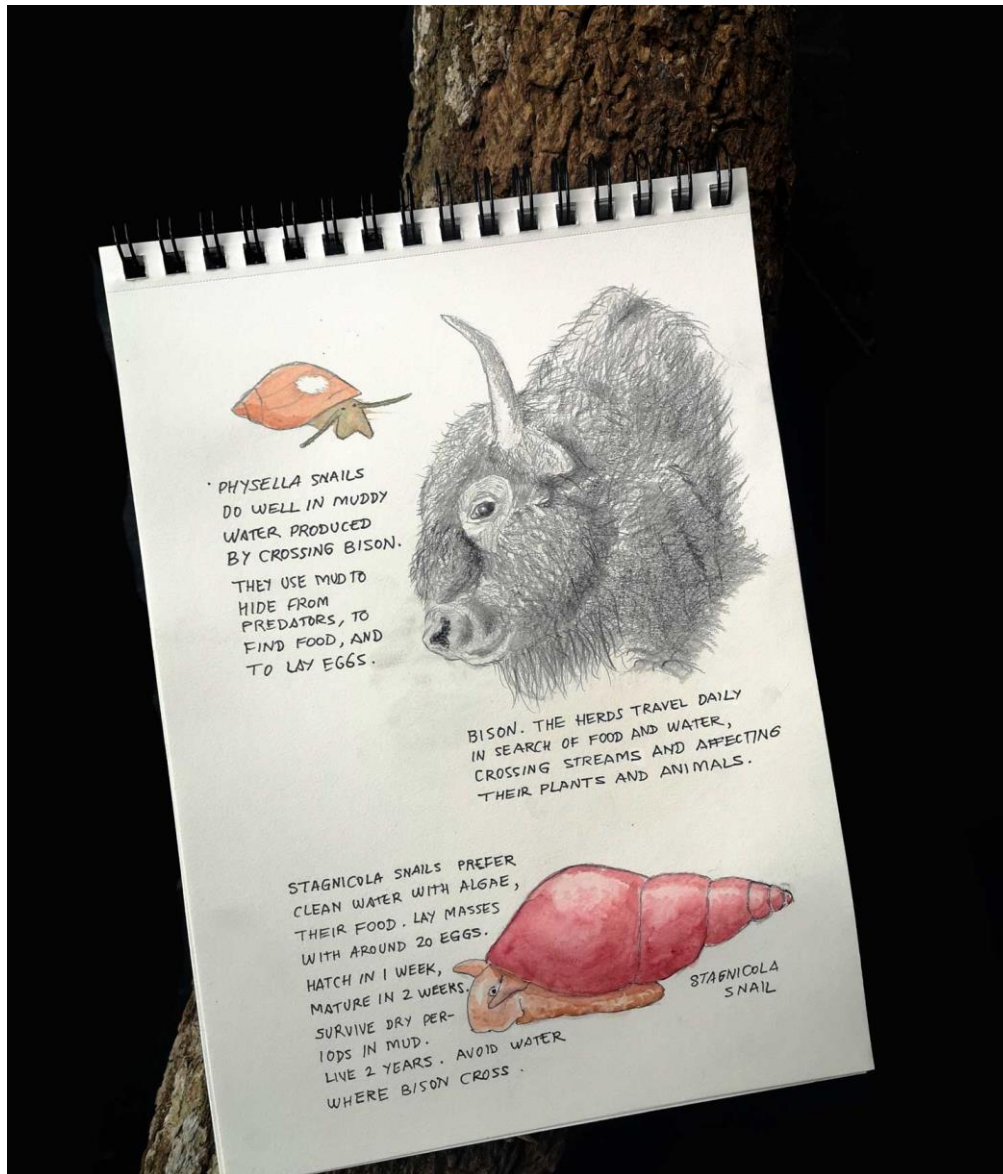 PHYSELLA SNAILS
DO WELL IN MUDDY
WATER PRODUCED
BY CROSSING BISON.
THEY USE MUD TO
HIDE FROM
PREDATORS, TO
FIND FOOD, AND
TO LAY EGGS.
BISON. THE HERDS TRAVEL DAILY
IN SEARCH OF FOOD AND WATER,
CROSSING STREAMS AND AFFECTING
THEIR PLANTS AND ANIMALS.
STAGNICOLA SNAILS PREFER
CLEAN WATER WITH ALGAE,
THEIR FOOD. LAY MASSES
WITH AROUND 20 EGGS.
HATCH IN 1 WEEK,
MATURE IN 2 WEEKS.
SURVIVE DRY PER-
IODS IN MUD.
LIVE 2 YEARS. AVOID WATER
WHERE BISON CROSS.
STAGNICOLA
SNAIL